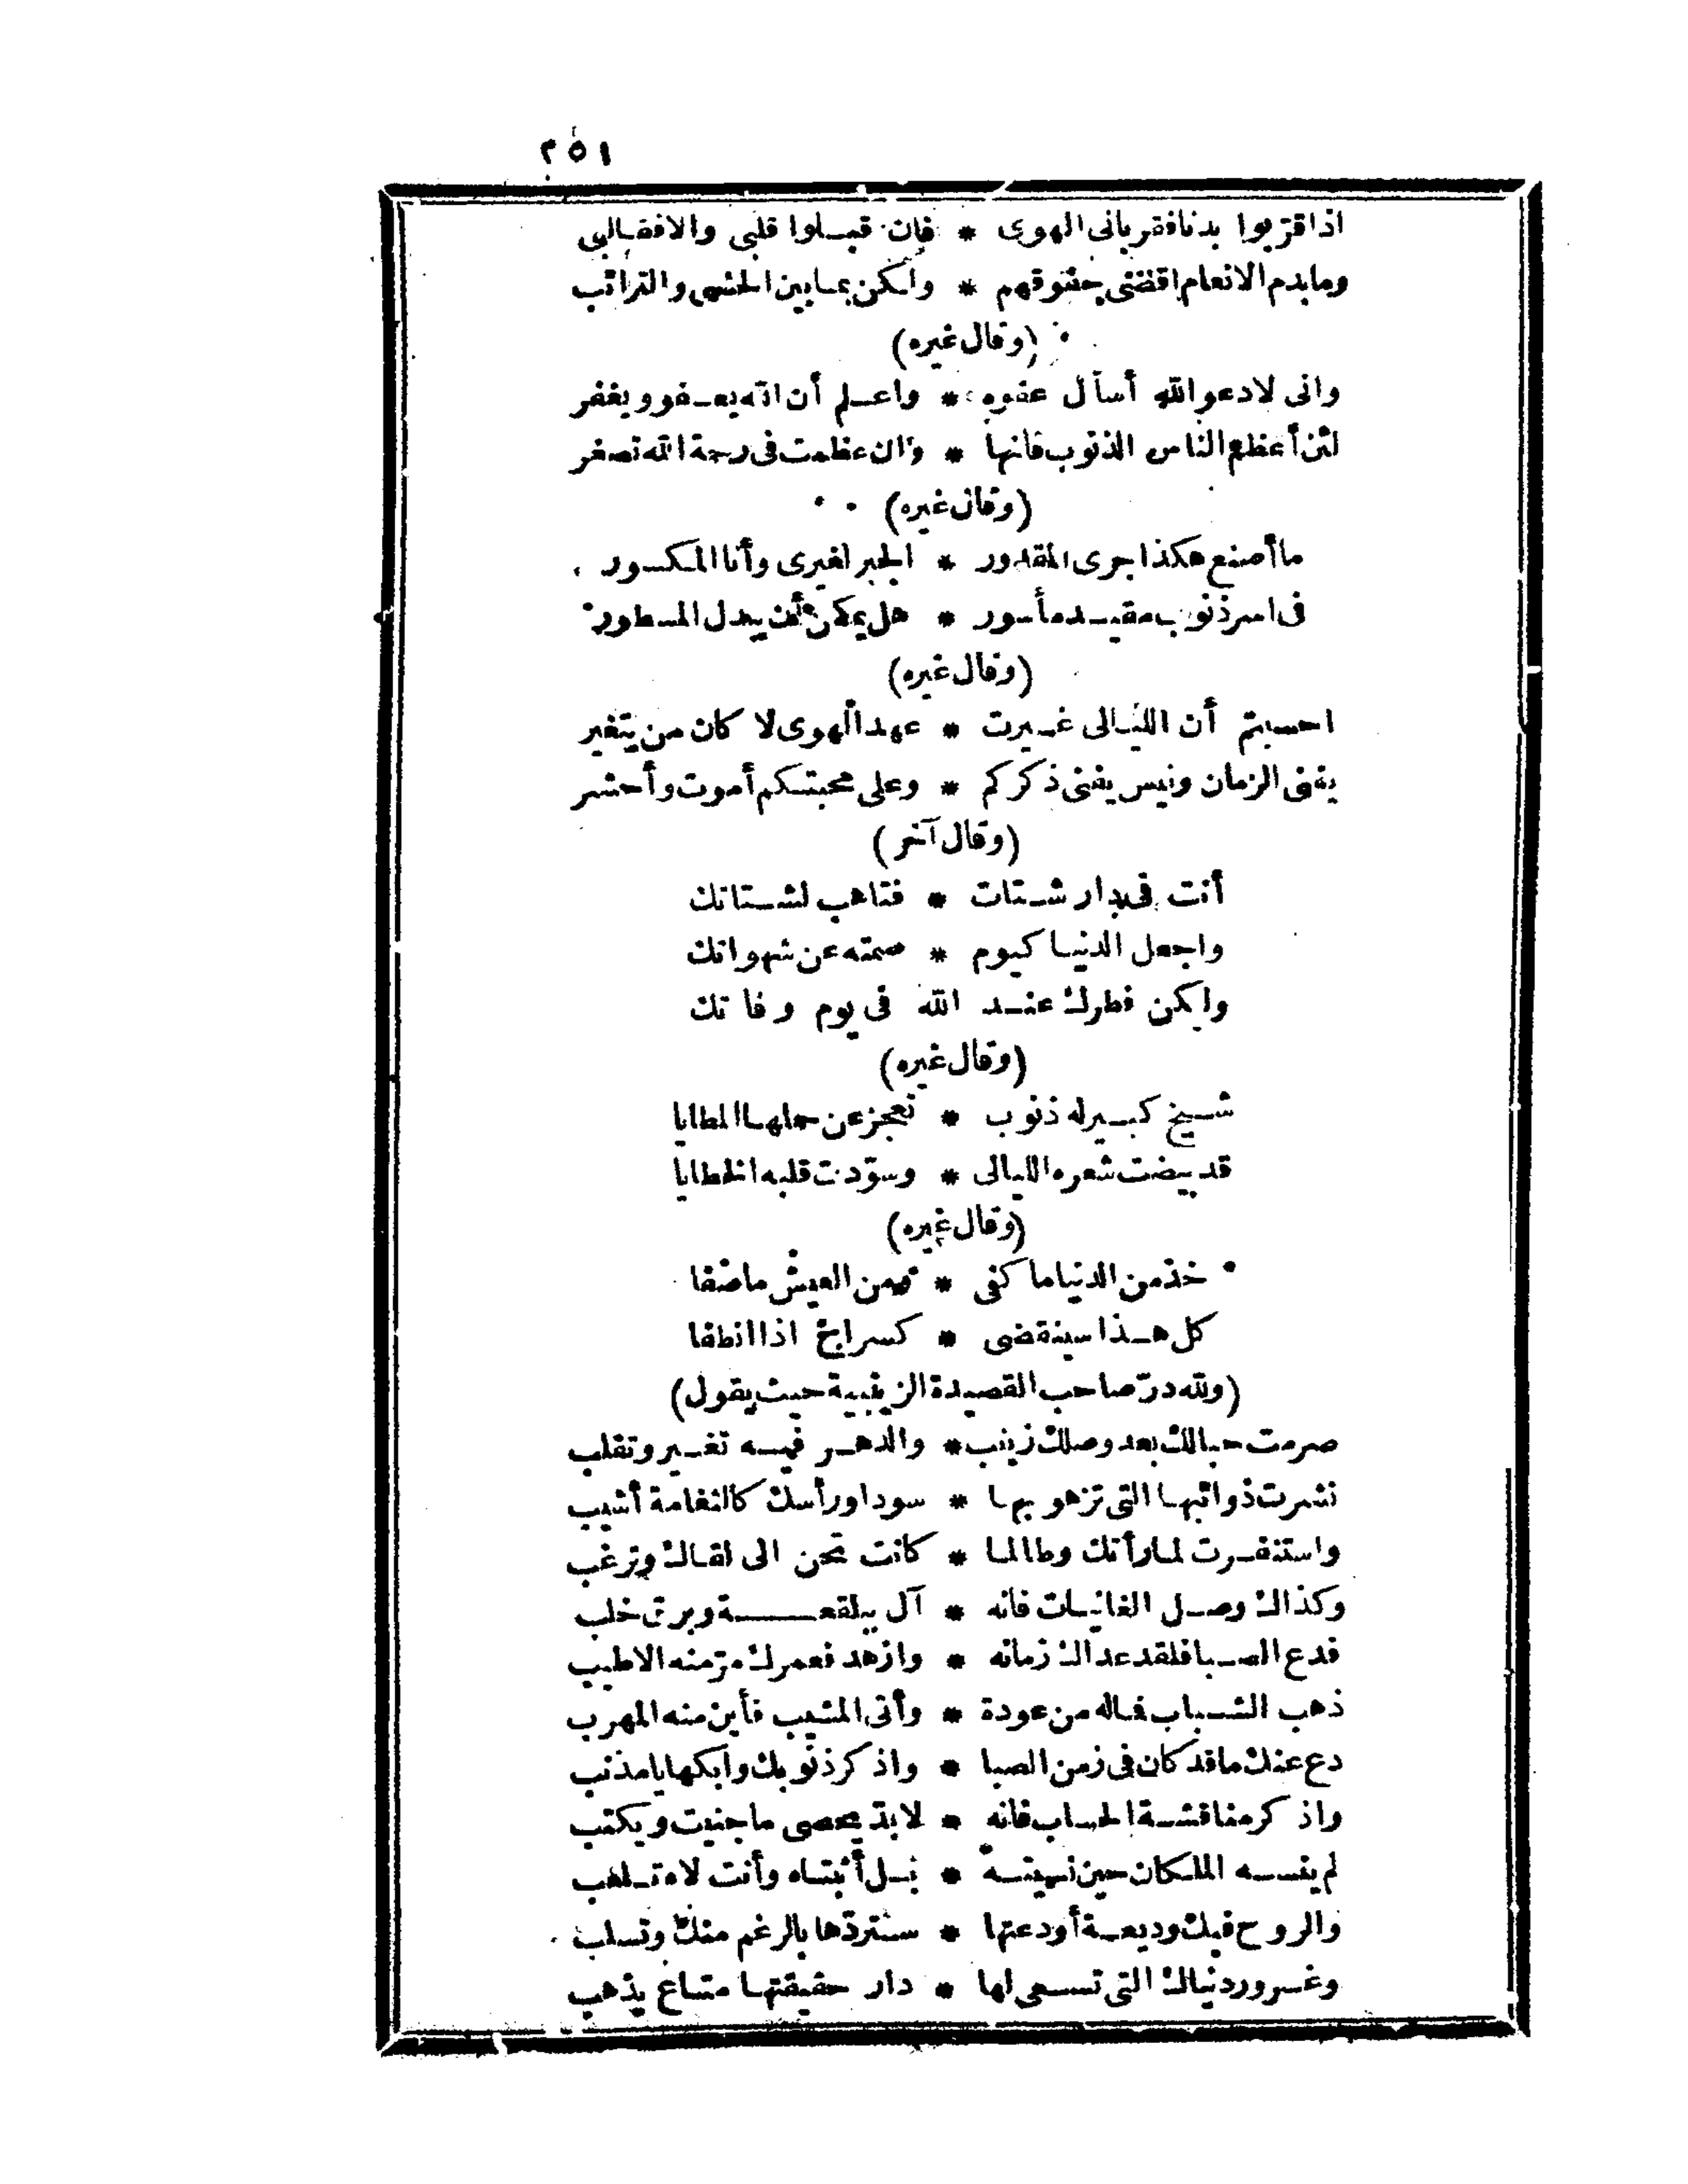 ٢٥١
اذا قرّبوا بدنا فقربانى الهوى * فان قبلوا قلبى والا فقالبى
وما بدم الانعام اقضى حقوقهم * ولكن بما بين الحشى والترائب
(وقال غيره)
وانى لادعو الله أسأل عفوه * واعلم أن الله يعفو ويغفر
لئن أعظم الناس الذنوب فانها * وان عظمت فى رحمة الله تصغر
(وقال غيره)
ما أصنع هكذا جرى المقدور * الجبر لغيرى وأنا المكسور
فى اسر ذنوب مقيد مأسور * هل يمكن أن يبدل المسطور
(وقال غيره)
احسبتم أن الليالى غيرت * عهد الهوى لا كان من يتغير
يفنى الزمان وليس يفنى ذكركم * وعلى محبتكم أموت وأحشر
(وقال آخر)
أنت فى دار شتات * فتاهب لشتاتك
واجعل الدنيا كيوم * صمته عن شهواتك
وليكن فطرك عند الله فى يوم وفاتك
(وقال غيره)
شيخ كبير له ذنوب * تعجز عن حملها المطايا
قد بيضت شعره الليالى * وسوّدت قلبه الخطايا
(وقال غيره)
خذ من الدنيا ما كفى * ومن العيش ما صفا
كل هذا سينقضى * كسراج اذا انطفا
(ولله درّ صاحب القصيدة الزينبية حيث يقول)
صرمت حبالك بعد وصلك زينب * والدهر فيه تغير وتقلب
نشرت ذوائبها التى تزهو بها * سودا ورأسك كالثغامة أشيب
واستنفرت لما رأتك وطالما * كانت تحن الى لقاك وترغب
وكذاك وصل الغانيات فانه * آل ببلقعة وبرق خلب
فدع الصبا فلقد عداك زمانه * وازهد فعمرك مرّ منه الاطيب
ذهب الشباب فماله من عودة * وأتى المشيب فأين منه المهرب
دع عنك ما قد كان فى زمن الصبا * واذكر ذنوبك وابكها يا مذنب
واذكر مناقشة الحساب فانه * لابدّ يحصى ما جنيت ويكتب
لم ينسه الملكان حين نسيته * بل أثبتاه وأنت لاه تلعب
والروح فيك وديعة أودعتها * ستردّها بالرغم منك وتسلب
وغرور دنياك التى تسعى لها * دار حقيقتها متاع يذهب